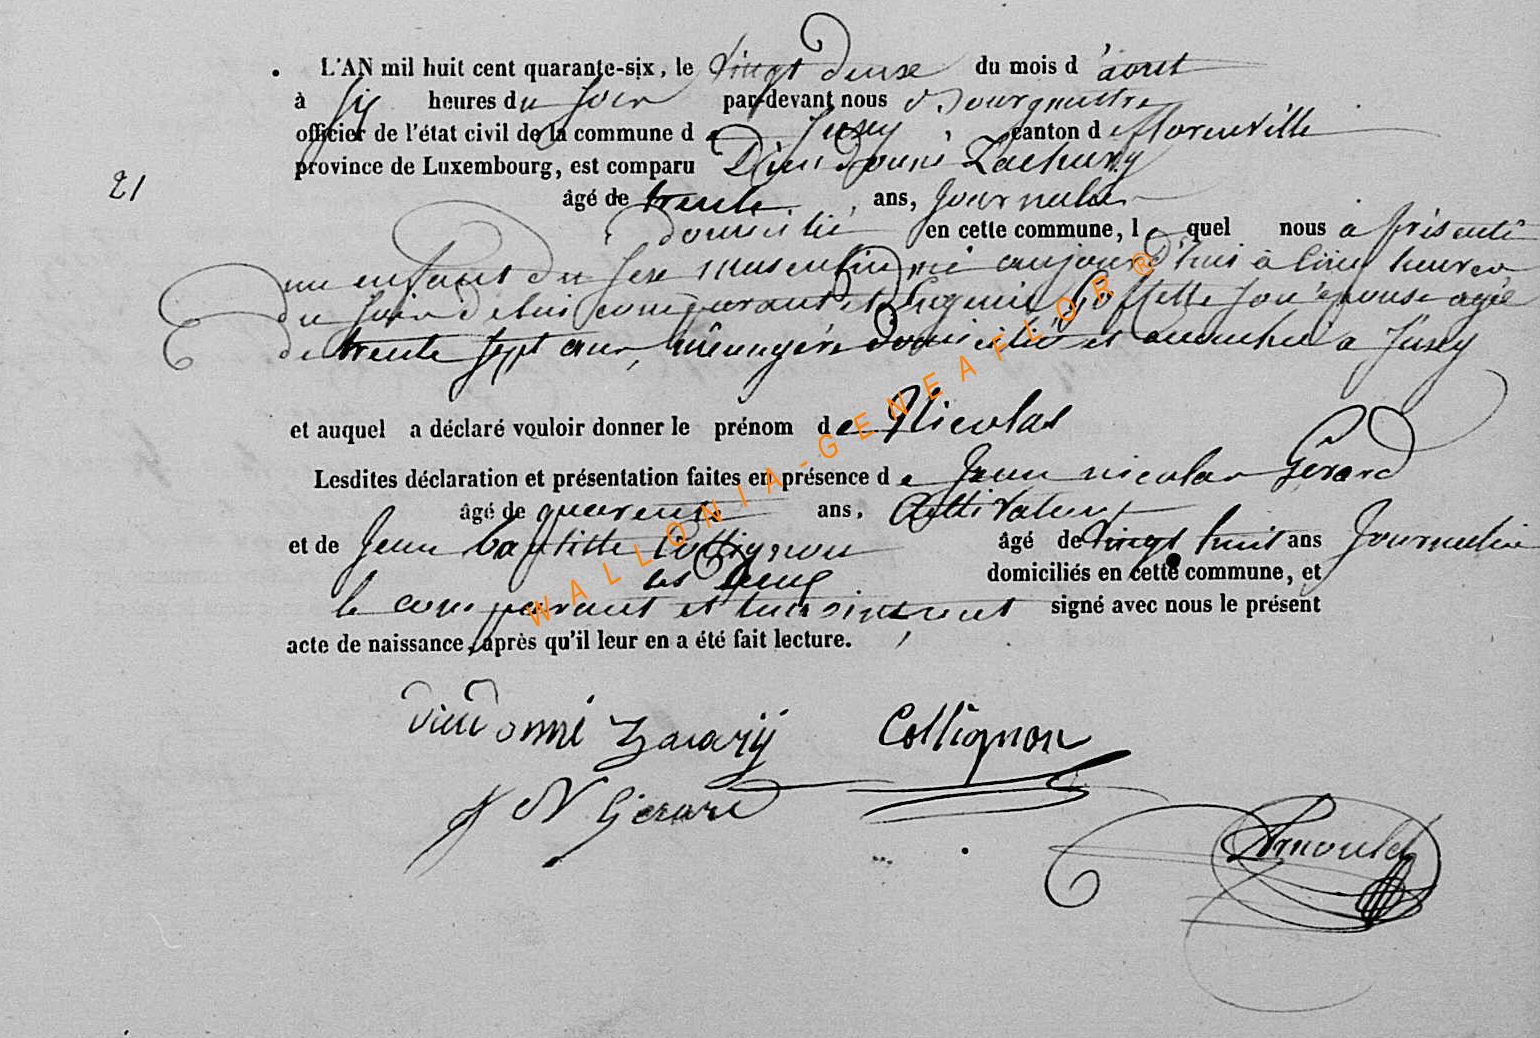 L'AN mil huit cent quarante-six, le vingt deux du mois d'avril
à six heures du soir par-devant nous Bourgmestre
officier de l'état civil de la commune de Jusey, canton de florenville
province de Luxembourg, est comparu Dieudonné Zachary
21
âgé de trente ans, Journalier
domicilié en cette commune, lequel nous a présenté
un enfant du sexe masculin, né aujourd'hui à cinq heures
du soir de lui comparant et Eugenie Goffette son épouse agée
de trente sept ans, ménagére domicilié et accouchée a Jusey
et auquel a déclaré vouloir donner le prénom de Nicolas
Lesdites déclaration et présentation faites en présence de Jean nicolas Gérard
âgé de quarente ans, Cultivateur
et de Jean baptiste Collignon âgé de vingt huit ans Journalier
les deux domiciliés en cette commune, et
le comparant et temoins ont signé avec nous le présent
acte de naissance, après qu'il leur en a été fait lecture.
WALLONIA-GENEAFLOR ®
Dieudonné Zacarij Collignon
J N Gerard
Arnould